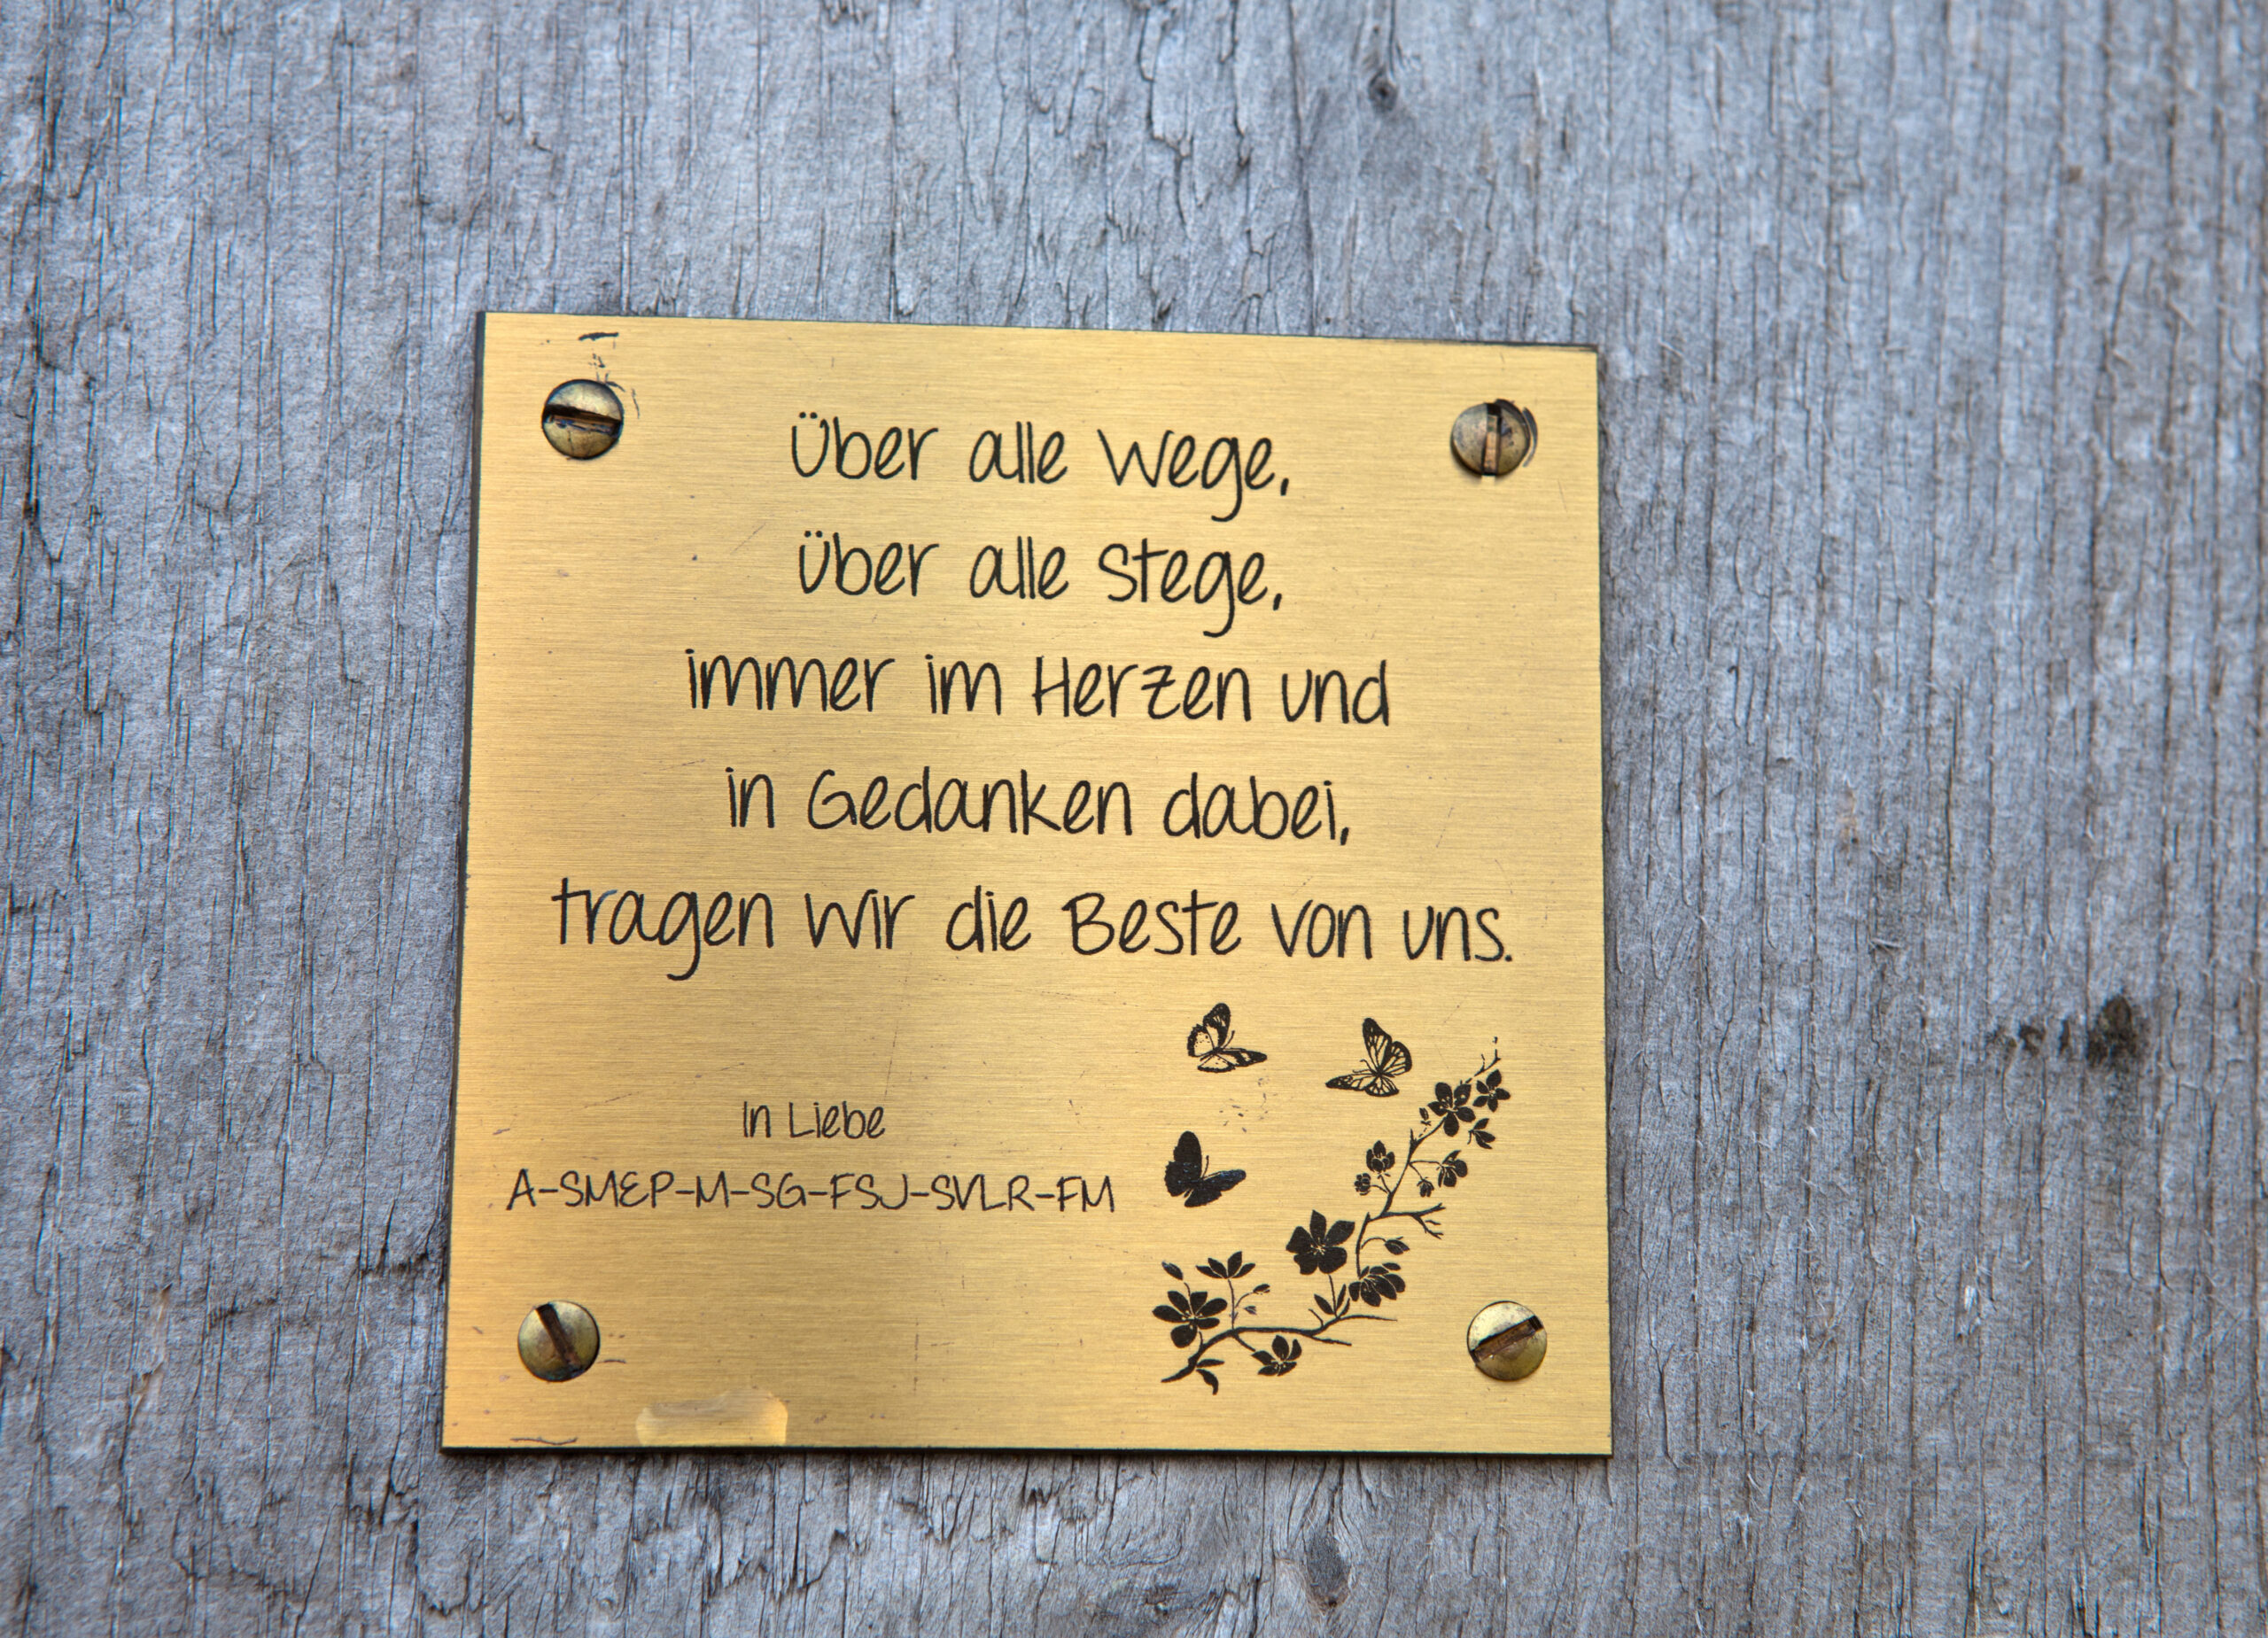 Über alle Wege,
über alle Stege,
immer im Herzen und
in Gedanken dabei,
tragen wir die Beste von uns.
In Liebe
A-SMEP-M-SG-FSJ-SVLR-FM